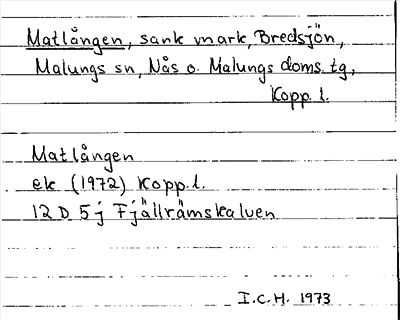 Matlången, sank mark, Bredsjön,
Malungs sn, Nås o. Malungs doms. tg,
Kopp. l.
Matlången
ek (1972) Kopp. l.
12 D 5 j Fjällrämskalven
I.C.H. 1973